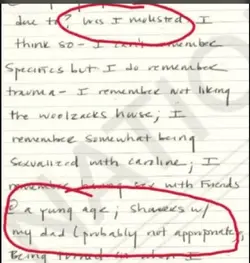 due to? Was I molested, I
think so - I can't remember
specifics but I do remember
trauma - I remember not liking
the woolzacks house; I
remember somewhat being
sexualized with caroline; I
remember sex with friends
@ a young age; showers w/
my dad (probably not appropriate,
Being turned on when I